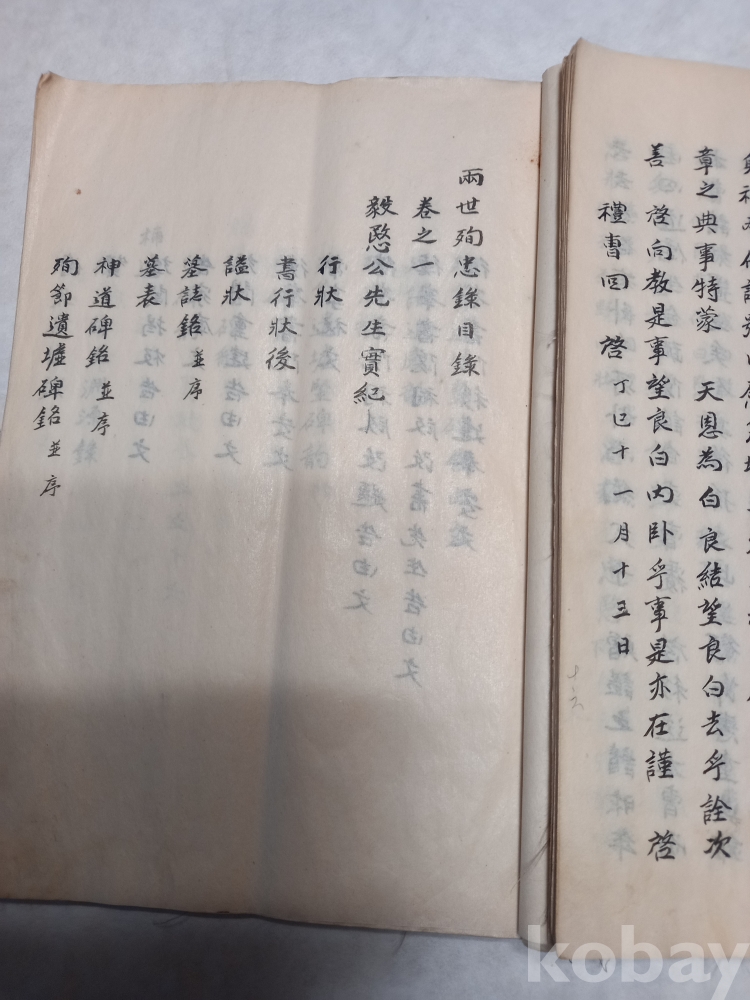 章之典事特蒙 天恩為白良結望良白去乎詮次
善 啓向敎是事望良白內卧乎事是亦在謹 啓
禮曹回 啓 丁巳十一月十五日
十六
兩世殉忠錄目錄
卷之一
毅愍公先生實紀
行狀
書行狀後
諡狀
墓誌銘 並序
墓表
神道碑銘 並序
殉節遺墟碑銘 並序
kobay